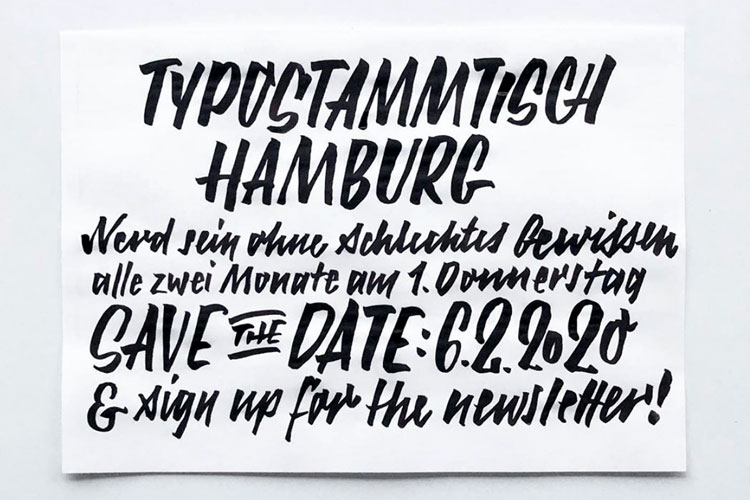 TYPOSTAMMTiSCH
HAMBURG
Nerd sein ohne schlechtes Gewissen
alle zwei Monate am 1. Donnerstag
SAVE THE DATE: 6.2.2020
& sign up for the newsletter!